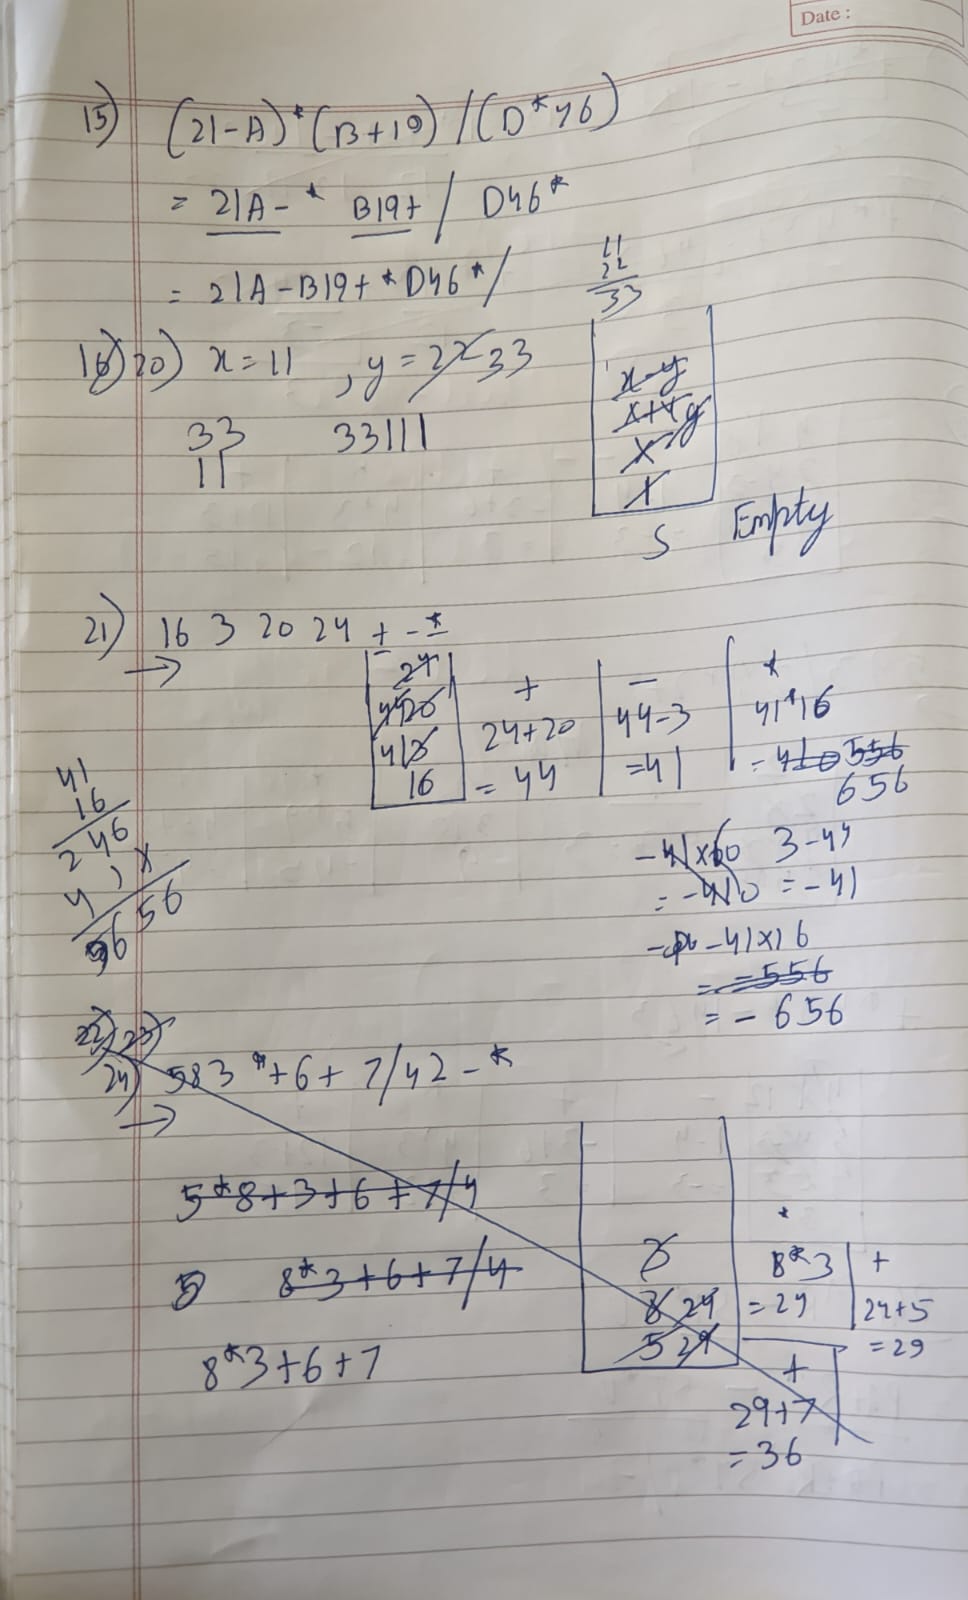 Date :
15) (21-A)*(B+19)/(D*46)
= 21A- * B19+ / D46*
= 21A-B19+*D46*/
11
22
33
16) 20) x=11 , y=22 33
33 33111
11
x-y
x+y y
x
x
S Empty
21) 16 3 20 24 + - *
→
24
44 20
41 3
16
+
24+20
= 44
-
44-3
=41
*
41*16
= 410 556
656
41
16
246
41 x
656
-41x60 3-44
= -410 = -41
-41x16
= -556
= -656
22) 23)
24) 583*+6+7/42-*
→
5*8+3+6+7/4
5 8*3+6+7/4
8*3+6+7
3
8 24
5 29
*
8*3
=24
+
24+5
=29
+
29+7
=36